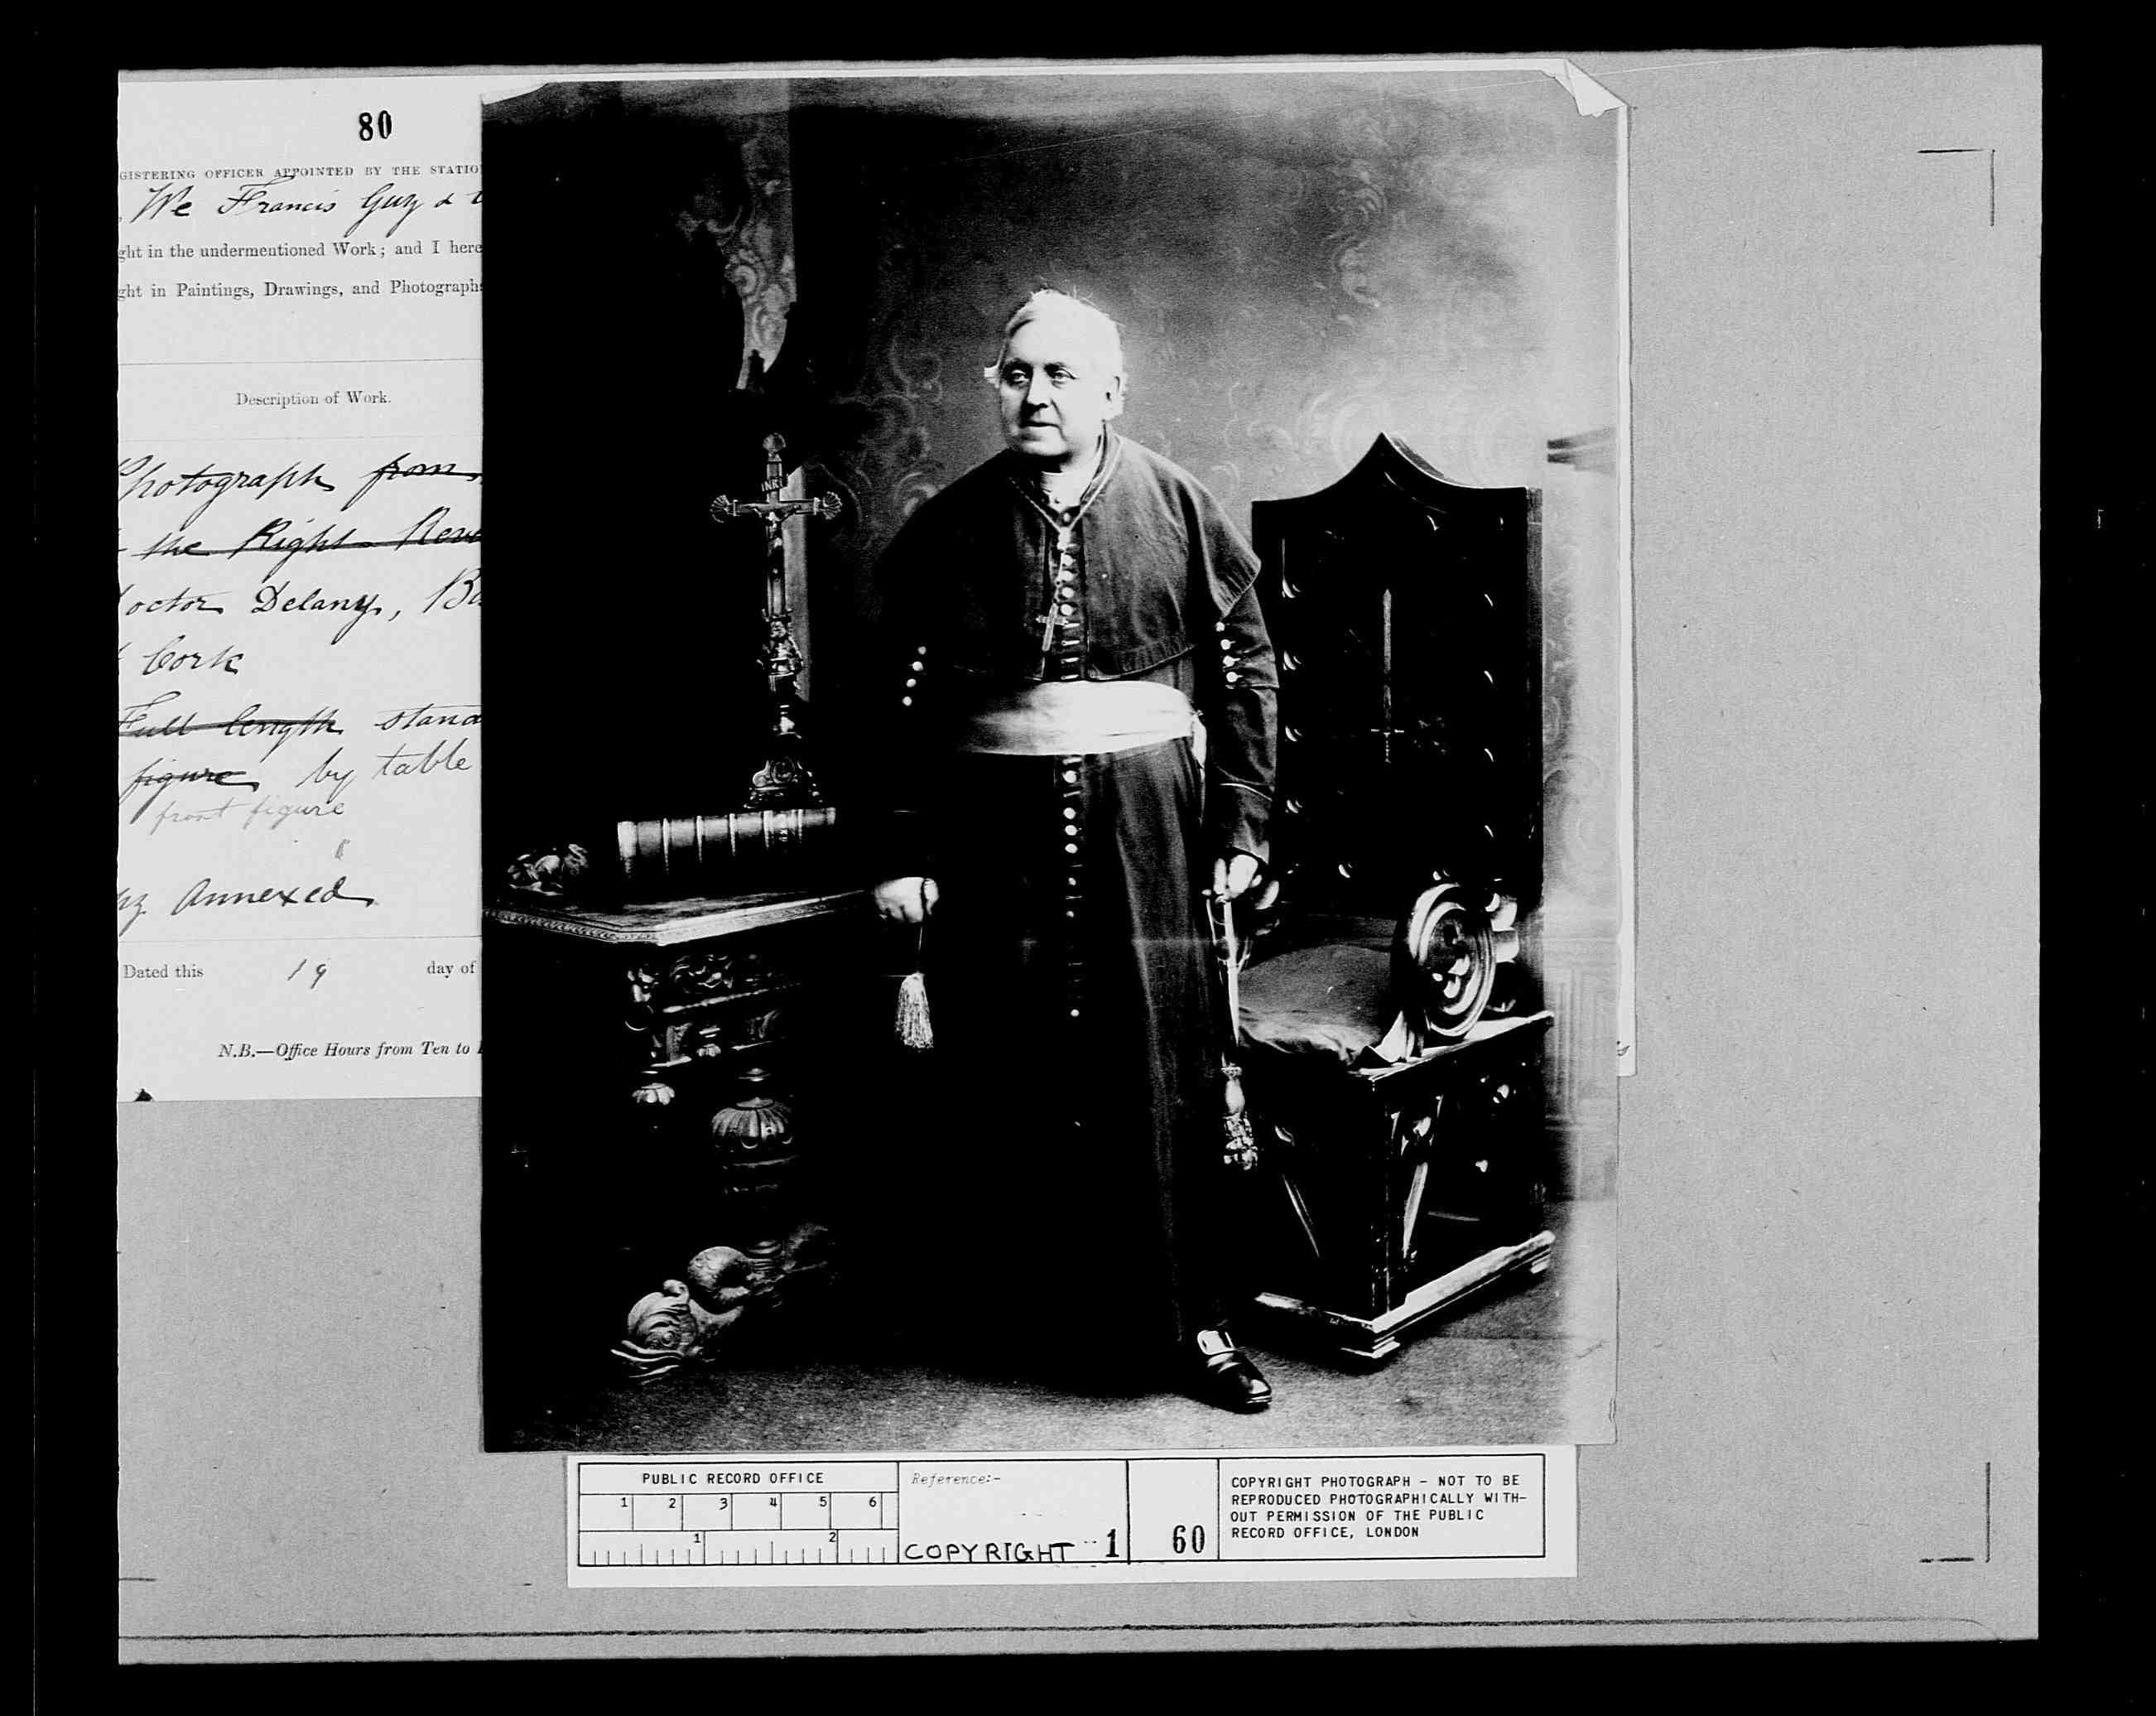 80
GISTERING OFFICER APPOINTED BY THE STATIO
We Francis Guy &
ght in the undermentioned Work; and I here
ght in Paintings, Drawings, and Photographs
Description of Work.
Photograph from
the Right Reve
octor Delany, Bi
Cork
Full length stand
figure by table
front figure
Annexed
Dated this 19 day of
N.B.—Office Hours from Ten to
INRI
PUBLIC RECORD OFFICE
1 2 3 4 5 6
1 2
Reference:-
COPYRIGHT 1
60
COPYRIGHT PHOTOGRAPH - NOT TO BE
REPRODUCED PHOTOGRAPHICALLY WITH-
OUT PERMISSION OF THE PUBLIC
RECORD OFFICE, LONDON